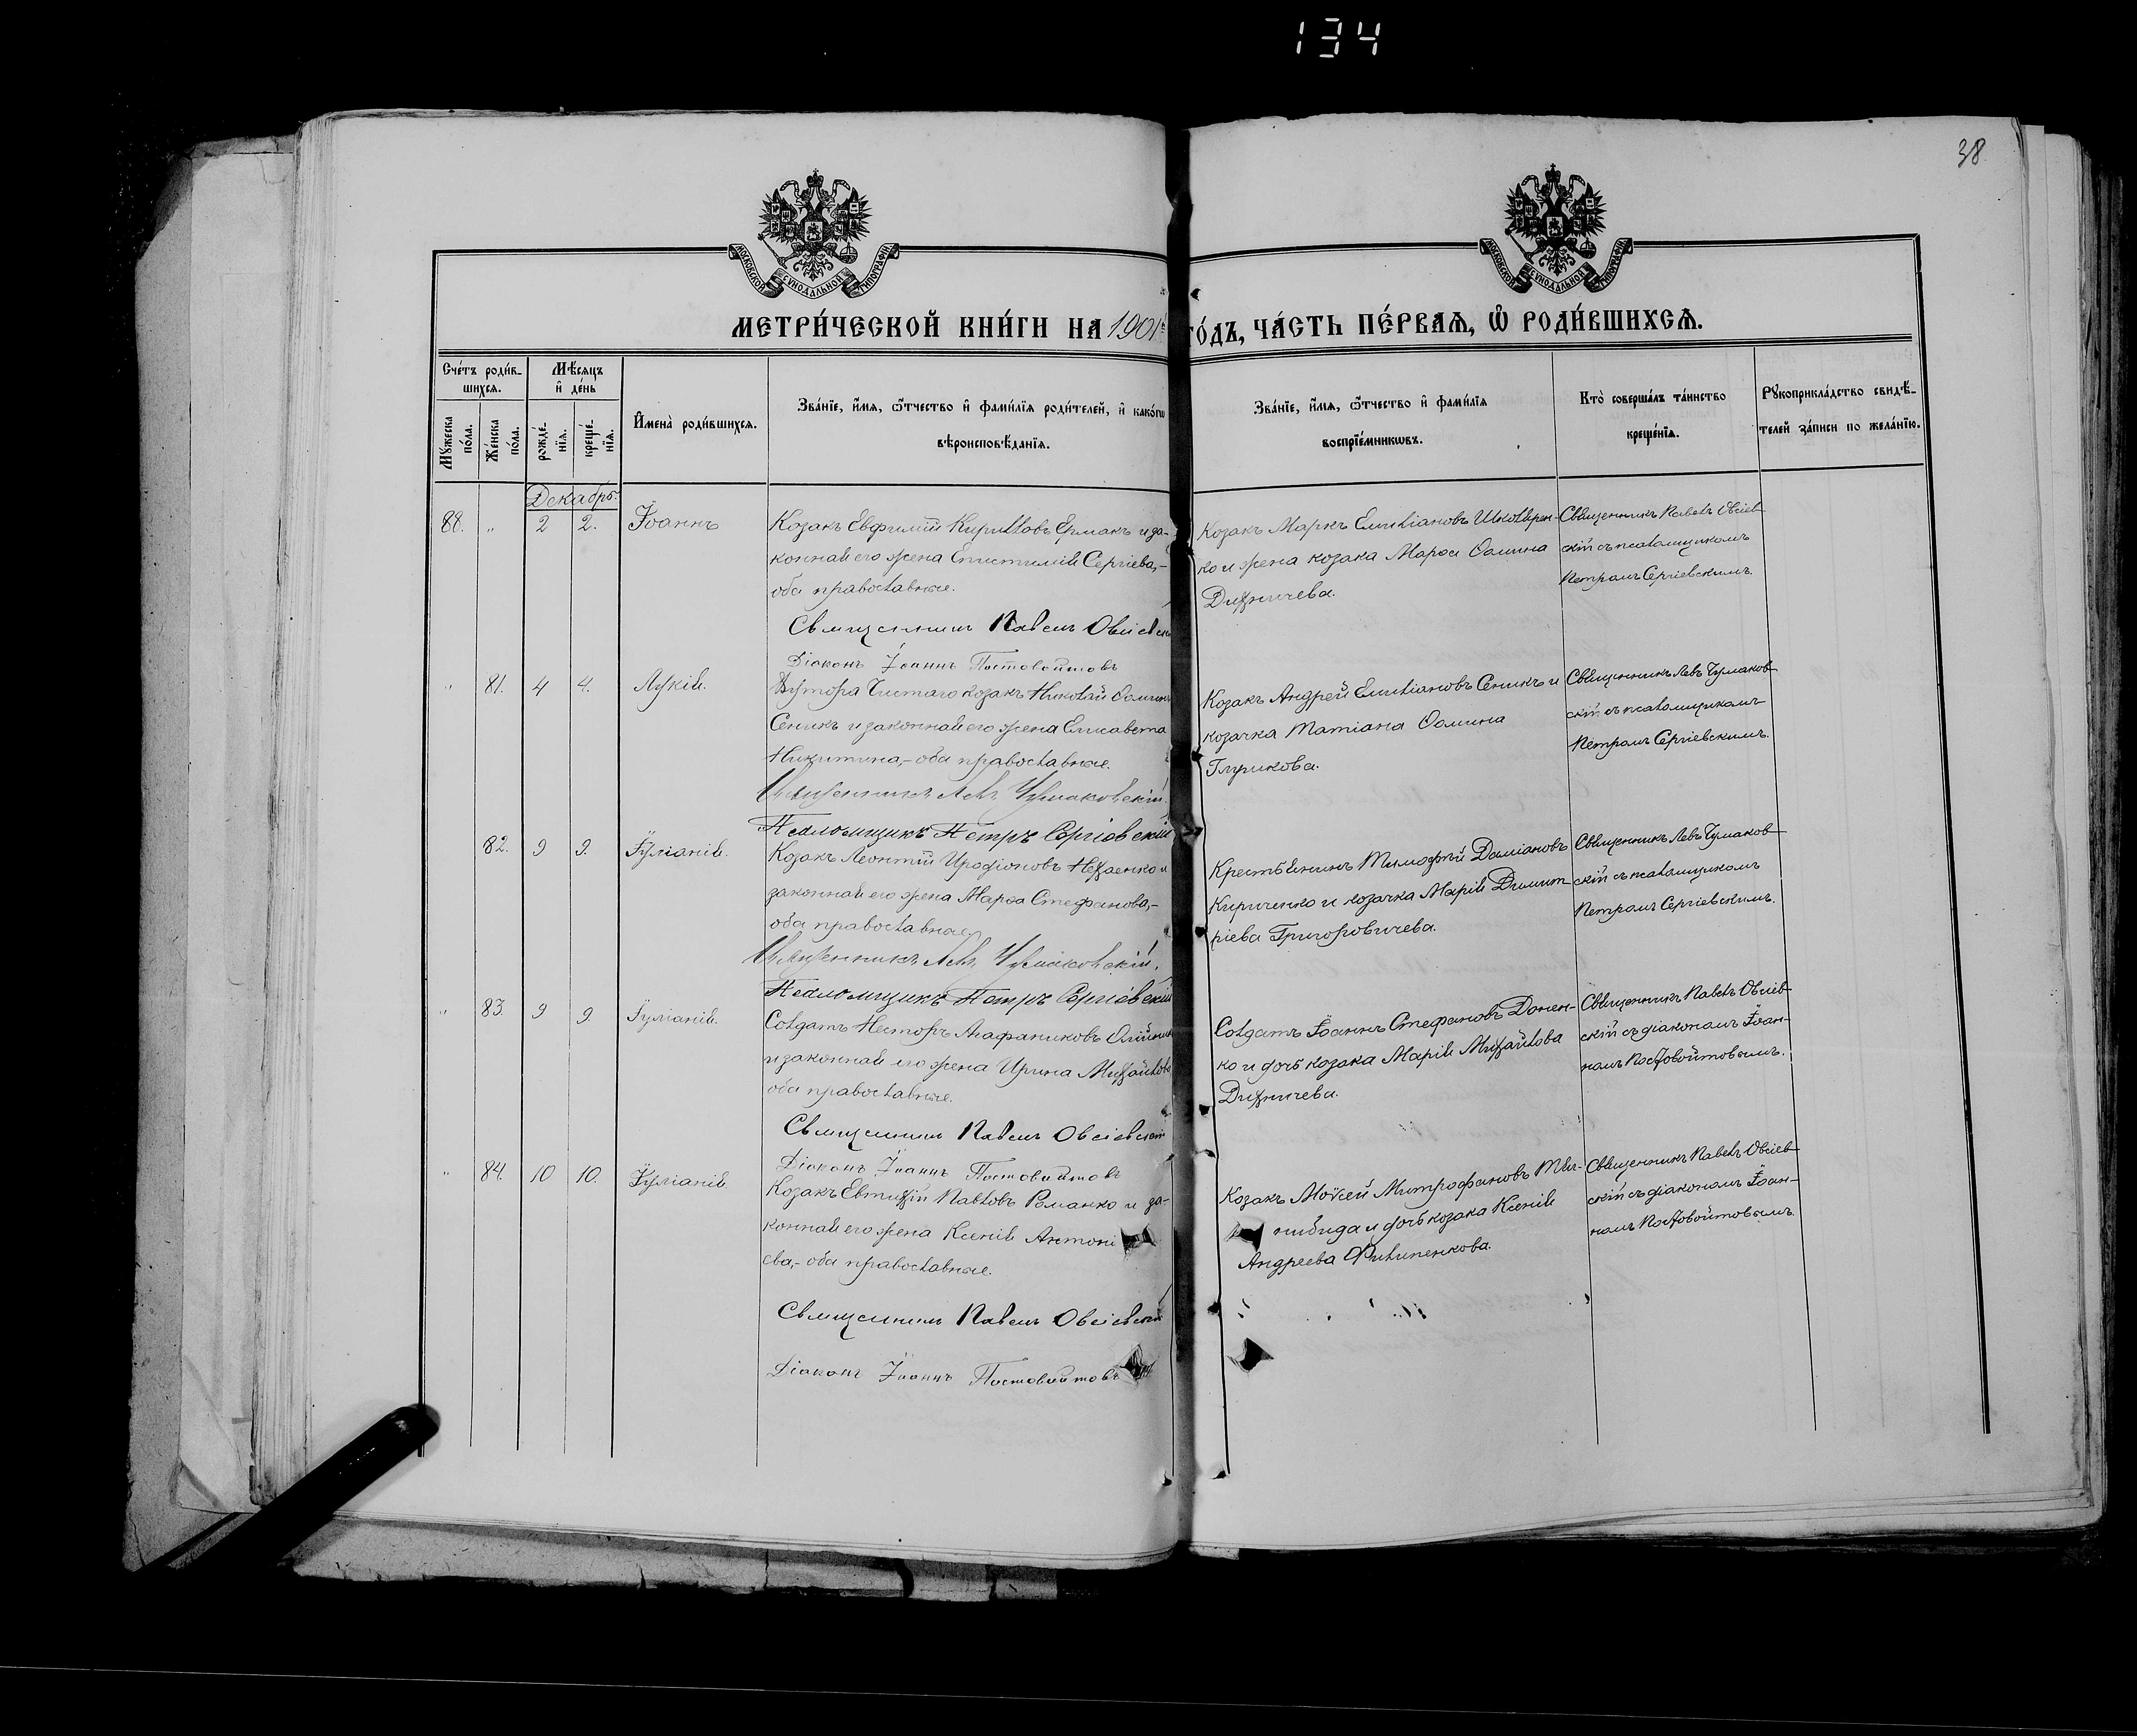 134
38
МОСКОВСКОЙ СѴНОДАЛЬНОЙ ТИПОГРАФІИ
МОСКОВСКОЙ СѴНОДАЛЬНОЙ ТИПОГРАФІИ
МЕТРИ́ЧЕСКОЙ КНИ́ГИ НА 1901й ГО́ДЪ, ЧА́СТЬ ПЕ́РВАѦ, Ѡ҆ РОДИ́ВШИХСѦ.
Сче́тъ роди́в-
шихсѧ.
Мꙋ́жеска по́ла.
Же́нска по́ла.
Мѣ́сѧцъ
и҆ де́нь
рожде́-
нїѧ.
креще́-
нїѧ.
И҆мена̀ роди́вшихсѧ.
Зва́нїе, и҆́мѧ, ѻ҆́тчество и҆ фамі́лїѧ роди́телей, и҆ како́гѡ
вѣроисповѣ́данїѧ.
Зва́нїе, и҆́мѧ, ѻ҆́тчество и҆ фамі́лїѧ
воспрїе́мникѡвъ.
Кто̀ соверша́лъ та́инство
креще́нїѧ.
Рꙋкоприкла́дство свидѣ́-
телей за́писи по жела́нїю.
Декабрь.
88. " 2 2. Іоаннъ
Козакъ Евфимій Кирилловъ Ермакъ и за-
конная его жена Епистимія Сергіева,-
оба православные.
Священникъ Павелъ Овсіевскій
Діаконъ Іоаннъ Постовойтовъ
Козакъ Маркъ Емиліановъ Школярен-
ко и жена козака Марѳа Ѳомина
Дихничева.
Священникъ Павелъ Овсіев-
скій съ псаломщикомъ
Петромъ Сергіевскимъ.
" 81. 4 4. Лукія.
Хутора Чистаго козакъ Николай Ѳоминъ
Сеникъ и законная его жена Елисавета
Никитина,- оба православные.
Священникъ Левъ Чумаковскій.
Псаломщикъ Петръ Сергіевскій
Козакъ Андрей Емиліановъ Сеникъ и
козачка Татіана Ѳомина
Глушкова.
Священникъ Левъ Чумаков-
скій съ псаломщикомъ
Петромъ Сергіевскимъ.
" 82. 9 9. Іуліанія.
Козакъ Леонтій Иродіоновъ Нехаенко и
законная его жена Марѳа Стефанова,-
оба православные
Священникъ Левъ Чумаковскій.
Псаломщикъ Петръ Сергіевскій
Крестьянинъ Тимофѣй Даміановъ
Кириченко и козачка Марія Димит-
ріева Григоровичева.
Священникъ Левъ Чумаков-
скій съ псаломщикомъ
Петромъ Сергіевскимъ.
" 83. 9 9. Іуліанія.
Солдатъ Несторъ Агафаниковъ Олійникъ
и законная его жена Ирина Михайлова
оба православные.
Священникъ Павелъ Овсіевскій
Діаконъ Іоаннъ Постовойтовъ
Солдатъ Іоаннъ Стефановъ Донен-
ко и дочь козака Марія Михайлова
Дихничева.
Священникъ Павелъ Овсіев-
скій съ діакономъ Іоан-
номъ Постовойтовымъ.
" 84. 10 10. Іуліанія.
Козакъ Евтихій Павловъ Романко и за-
конная его жена Ксенія Антоні
ева,- оба православные.
Священникъ Павелъ Овсіевскій
Діаконъ Іоаннъ Постовойтовъ
Козакъ Моѵсей Митрофановъ Тяг-
нибида и дочь козака Ксенія
Андреева Филипенкова.
Священникъ Павелъ Овсіев-
скій съ діакономъ Іоан-
номъ Постовойтовымъ.